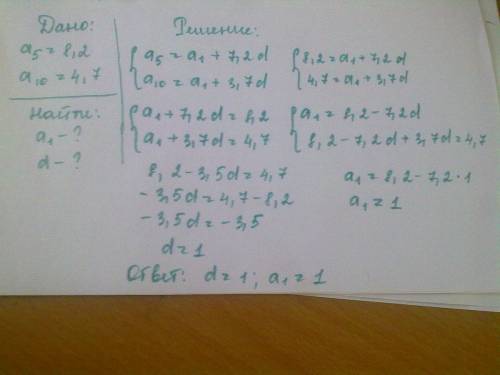 Дано:
a5 = 8,2
a10 = 4,7
Найти:
a1 - ?
d - ?
Решение:
{a5 = a1 + 7,2d
{a10 = a1 + 3,7d
{8,2 = a1 + 7,2d
{4,7 = a1 + 3,7d
{a1 + 7,2d = 8,2
{a1 + 3,7d = 4,7
{a1 = 8,2 - 7,2d
{8,2 - 7,2d + 3,7d = 4,7
8,2 - 3,5d = 4,7
- 3,5d = 4,7 - 8,2
- 3,5d = - 3,5
d = 1
a1 = 8,2 - 7,2 · 1
a1 = 1
Ответ: d = 1; a1 = 1